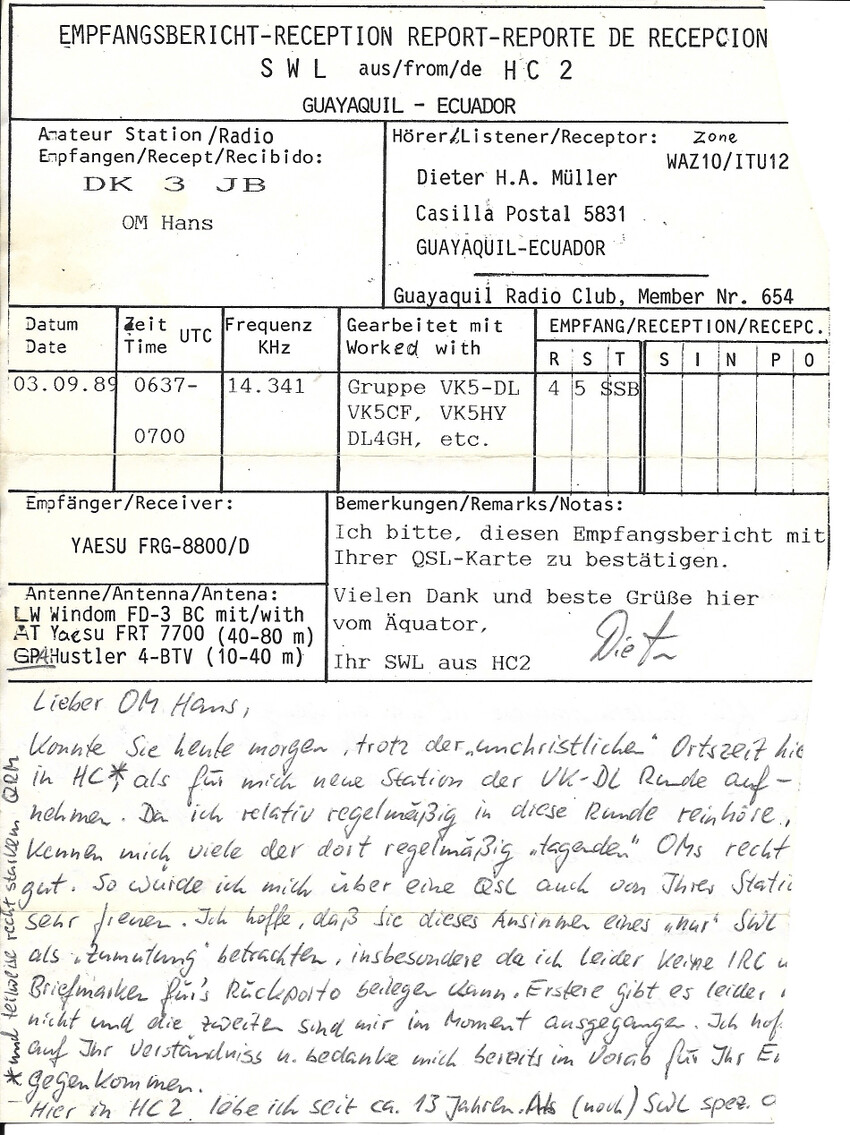 EMPFANGSBERICHT-RECEPTION REPORT-REPORTE DE RECEPCION
SWL aus/from/de HC2
GUAYAQUIL - ECUADOR
Amateur Station/Radio
Empfangen/Recept/Recibido:
DK 3 JB
OM Hans
Hörer/Listener/Receptor: Zone
WAZ10/ITU12
Dieter H.A. Müller
Casilla Postal 5831
GUAYAQUIL-ECUADOR
Guayaquil Radio Club, Member Nr. 654
Datum
Date
Zeit UTC
Time
Frequenz
KHz
Gearbeitet mit
Worked with
EMPFANG/RECEPTION/RECEPC.
R S T S I N P O
03.09.89 0637- 14.341 Gruppe VK5-DL 4 5 SSB
VK5CF, VK5HY
0700 DL4GH, etc.
Empfänger/Receiver:
YAESU FRG-8800/D
Antenne/Antenna/Antena:
LW Windom FD-3 BC mit/with
AT Yaesu FRT 7700 (40-80 m)
GPA Hustler 4-BTV (10-40 m)
Bemerkungen/Remarks/Notas:
Ich bitte, diesen Empfangsbericht mit
Ihrer QSL-Karte zu bestätigen.
Vielen Dank und beste Grüße hier
vom Äquator,
Ihr SWL aus HC2
Lieber OM Hans,
Konnte Sie heute morgen, trotz der "unchristlichen" Ortszeit hie
in HC*, als für mich neue Station der VK-DL Runde auf-
nehmen. Da ich relativ regelmäßig in diese Runde reinhöre,
kennen mich viele der dort regelmäßig "tagenden" OMs recht
gut. So würde ich mich über eine QSL auch von Ihrer Stati
sehr freuen. Ich hoffe, daß Sie dieses Ansinnen eines "nur" SWL
als "Zumutung" betrachten, insbesondere da ich leider keine IRC u
Briefmarken für's Rückporto beilegen kann. Erstere gibt es leider
nicht und die zweiten sind mir im Moment ausgegangen. Ich hof
auf Ihr Verständniss u. bedanke mich bereits im Vorab für Ihr E
gegenkommen.
Hier in HC2 lebe ich seit ca. 13 Jahren. Als (noch) SWL spez.
* und teilweise recht starkem QRM